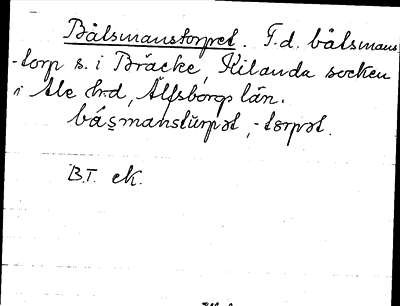 Båtsmanstorpet. F.d. båtsmans
-torp s. i Bräcke, Kilanda socken
i Ale hd, Älfsborgs län.
båsmanstùrpət, -tɵrpət.
B.T. ek.